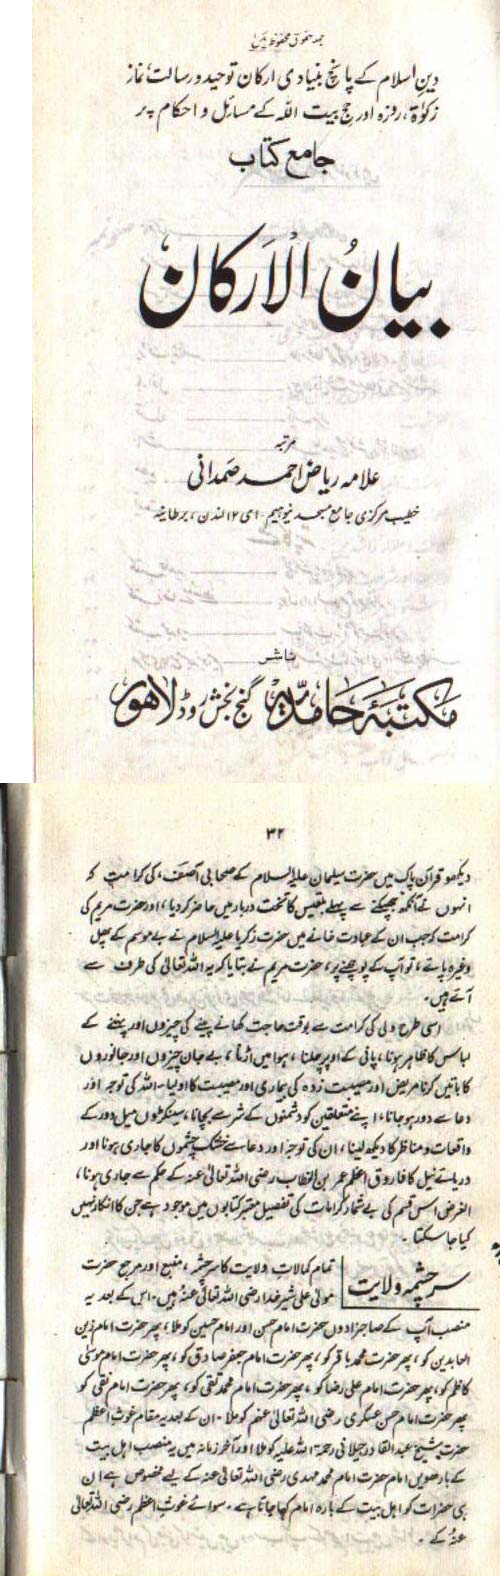 جملہ حقوق محفوظ ہیں
دینِ اسلام کے پانچ بنیادی ارکان توحید و رسالت، نماز
زکوٰۃ، روزہ اور حج بیت اللہ کے مسائل و احکام پر
جامع کتاب
بیانُ الارکان
مرتبہ
علامہ ریاض احمد صمدانی
خطیب مرکزی جامع مسجد نیوہیم۔ ای ۱۲ لندن، برطانیہ
ناشر
مکتبۂ حامدیہ گنج بخش روڈ لاہور
۳۲
دیکھو قرآن پاک میں حضرت سلیمان علیہ السلام کے صحابی آصف، کی کرامت کہ
انہوں نے آنکھ جھپکنے سے پہلے بلقیس کا تخت دربار میں حاضر کر دیا، اور حضرت مریم کی
کرامت کہ جب ان کے عبادت خانے میں حضرت زکریا علیہ السلام نے بے موسم کے پھل
وغیرہ پاتے، تو آپ کے پوچھنے پر، حضرت مریم نے بتایا کہ یہ اللہ تعالیٰ کی طرف سے
آتے ہیں۔
اسی طرح ولی کی کرامت سے بوقت حاجت کھانے پینے کی چیزوں اور پہننے کے
لباس کا ظاہر ہونا، پانی کے اوپر چلنا، ہوا میں اڑنا، بے جان چیزوں اور جانوروں
کا باتیں کرنا مریض اور مصیبت زدہ کی بیماری اور مصیبت کا اولیاء اللہ کی توجہ اور
دعا سے دور ہو جانا، اپنے متعلقین کو دشمنوں کے شر سے بچانا، سینکڑوں میل دور کے
واقعات و مناظر کا دیکھ لینا، ان کی توجہ اور دعا سے خشک چشموں کا جاری ہونا اور
دریائے نیل کا فاروق اعظم عمر بن الخطاب رضی اللہ تعالیٰ عنہ کے حکم سے جاری ہونا،
الغرض اس قسم کی بے شمار کرامات کی تفصیل معتبر کتابوں میں موجود ہے جن کا انکار نہیں
کیا جا سکتا۔
سرچشمہ ولایت
تمام کمالاتِ ولایت کا سرچشمہ، منبع اور مرجع حضرت
مولیٰ علی شیر خدا رضی اللہ تعالیٰ عنہ ہیں۔ اس کے بعد یہ
منصب آپ کے صاحبزادوں حضرت امام حسن اور امام حسین کو ملا، پھر حضرت امام زین
العابدین کو، پھر حضرت محمد باقر کو، پھر حضرت امام جعفر صادق کو، پھر حضرت امام موسیٰ
کاظم کو، پھر حضرت امام علی رضا کو، پھر حضرت امام محمد تقی کو، پھر حضرت امام نقی کو
پھر حضرت امام حسن عسکری رضی اللہ تعالیٰ عنہم کو ملا۔ ان کے بعد یہ مقام غوث اعظم
حضرت شیخ عبدالقادر جیلانی رحمۃ اللہ علیہ کو ملا اور آخر زمانہ میں یہ منصب اہل بیت
کے بارھویں امام حضرت امام محمد مہدی رضی اللہ تعالیٰ عنہ کے لیے مخصوص ہے ان
ہی حضرات کو اہل بیت کے بارہ امام کہا جاتا ہے۔ سوائے غوث اعظم رضی اللہ تعالیٰ
عنہ کے۔